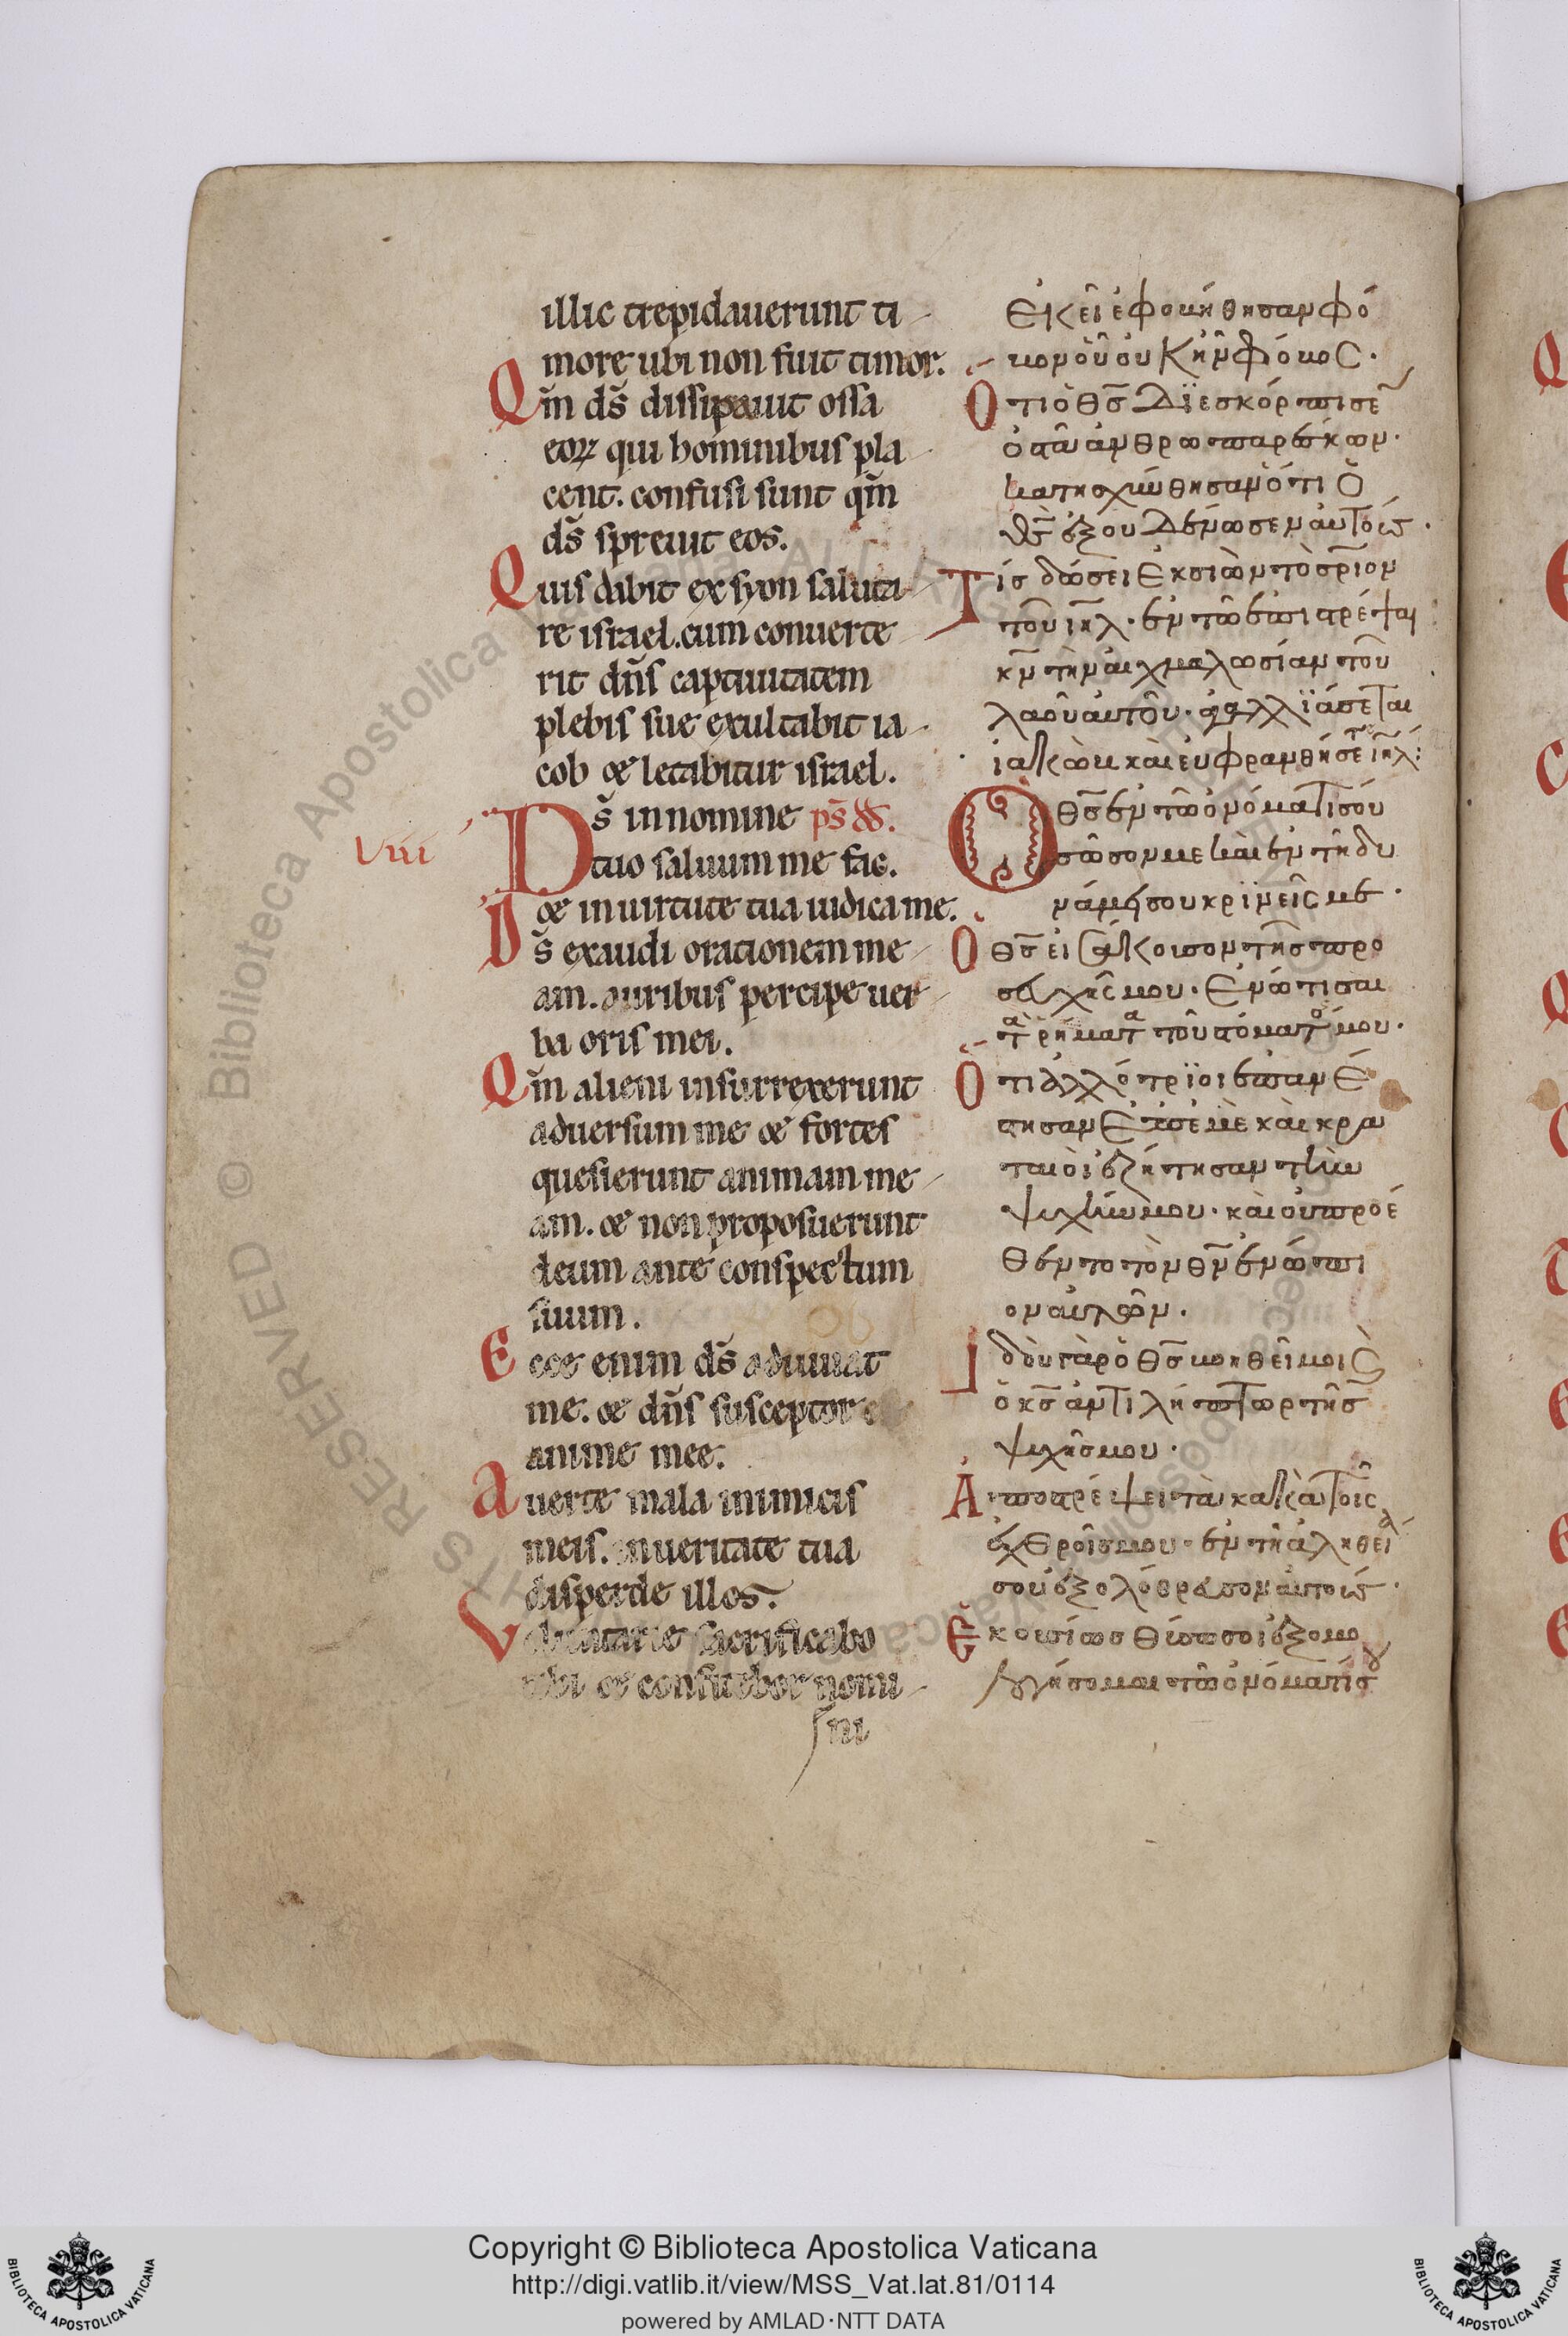 illic trepidauerunt ti-
more ubi non fuit timor.
Qm̄ ds̄ dissipauit ossa
eoꝝ qui hominibus pla-
cent. confusi sunt qm̄
ds̄ spreuit eos.
Quis dabit ex syon saluta-
re israel. cum conuerte-
rit dn̄s captiuitatem
plebis sue exultabit ia-
cob & letabitur israel.
Ds̄ in nomine ps̄ dd̄.
VIII
tuo saluum me fac.
& in uirtute tua iudica me.
Ds̄ exaudi orationem me-
am. auribus percipe uer-
ba oris mei.
Qm̄ alieni insurrexerunt
aduersum me & fortes
quesierunt animam me-
am. & non proposuerunt
deum ante conspectum
suum.
Ecce enim ds̄ adiuuat
me. & dn̄s susceptor
anime mee.
Auerte mala inimicis
meis. in ueritate tua
disperde illos.
Voluntarie sacrificabo
tibi & confitebor nomi-
ni
ἐκεῖ ἐφοβήθησαν φό
βον οὗ οὐκ ἦν φόβος.
Ὅτι ὁ θς̄ διεσκόρπισεν
ὀστᾶ ἀνθρωπαρέσκων.
κατησχύνθησαν ὅτι ὁ
θς̄ ἐξουδένωσεν αὐτούς.
Τίς δώσει ἐκ σιὼν τὸ σρ̄ιον
τοῦ ιηλ̄. ἐν τῶ ἐπιστρέψαι
κν̄ τὴν αἰχμαλωσίαν τοῦ
λαοῦ αὐτοῦ. ἀγαλλιάσεται
ἰακὼβ καὶ εὐφρανθήσεται ιηλ̄:
Ὁ θς̄ ἐν τῶ ὀνόματί σου
σῶσον με καὶ ἐν τῆ δυ
νάμει σου κρινεῖς με.
Ὁ θς̄ εἰσάκουσον τῆς προ
σευχῆς μου. ἐνώτισαι
τὰ ῥήματα τοῦ στόματός μου.
Ὅτι ἀλλότριοι ἐπανέ
στησαν ἐπ' ἐμὲ καὶ κρα
ταιοὶ ἐζήτησαν τὴν
ψυχήν μου. καὶ οὐ προέ
θεντο τὸν θν̄ ἐνώπι
ον αὐτῶν.
Ἰδοὺ γὰρ ὁ θς̄ βοηθεῖ μοι
ὁ κς̄ ἀντιλήπτωρ τῆς
ψυχῆς μου.
Ἀποστρέψει τὰ κακὰ τοῖς
ἐχθροῖς μου. ἐν τῆ ἀληθεία
σου ἐξολόθρευσον αὐτούς.
Ἑκουσίως θύσω σοι ἐξομο
λογήσομαι τῶ ὀνόματί σ
Copyright © Biblioteca Apostolica Vaticana
http://digi.vatlib.it/view/MSS_Vat.lat.81/0114
powered by AMLAD·NTT DATA